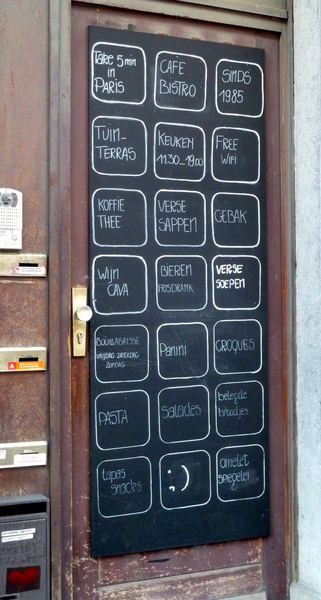 Take 5 min
in
PARIS
CAFE
BISTRO
SINDS
1985
TUIN-
TERRAS
KEUKEN
11.30-19.00
FREE
WIFI
KOFFIE
THEE
VERSE
SAPPEN
GEBAK
Wijn
CAVA
BIEREN
FRISDRANK
VERSE
SOEPEN
BOUILLABAISSE
VRIJDAG ZATERDAG
ZONDAG
Panini
CROQUES
PASTA
Salades
belegde
broodjes
tapas
snacks
;)
omelet
SPIEGELEI